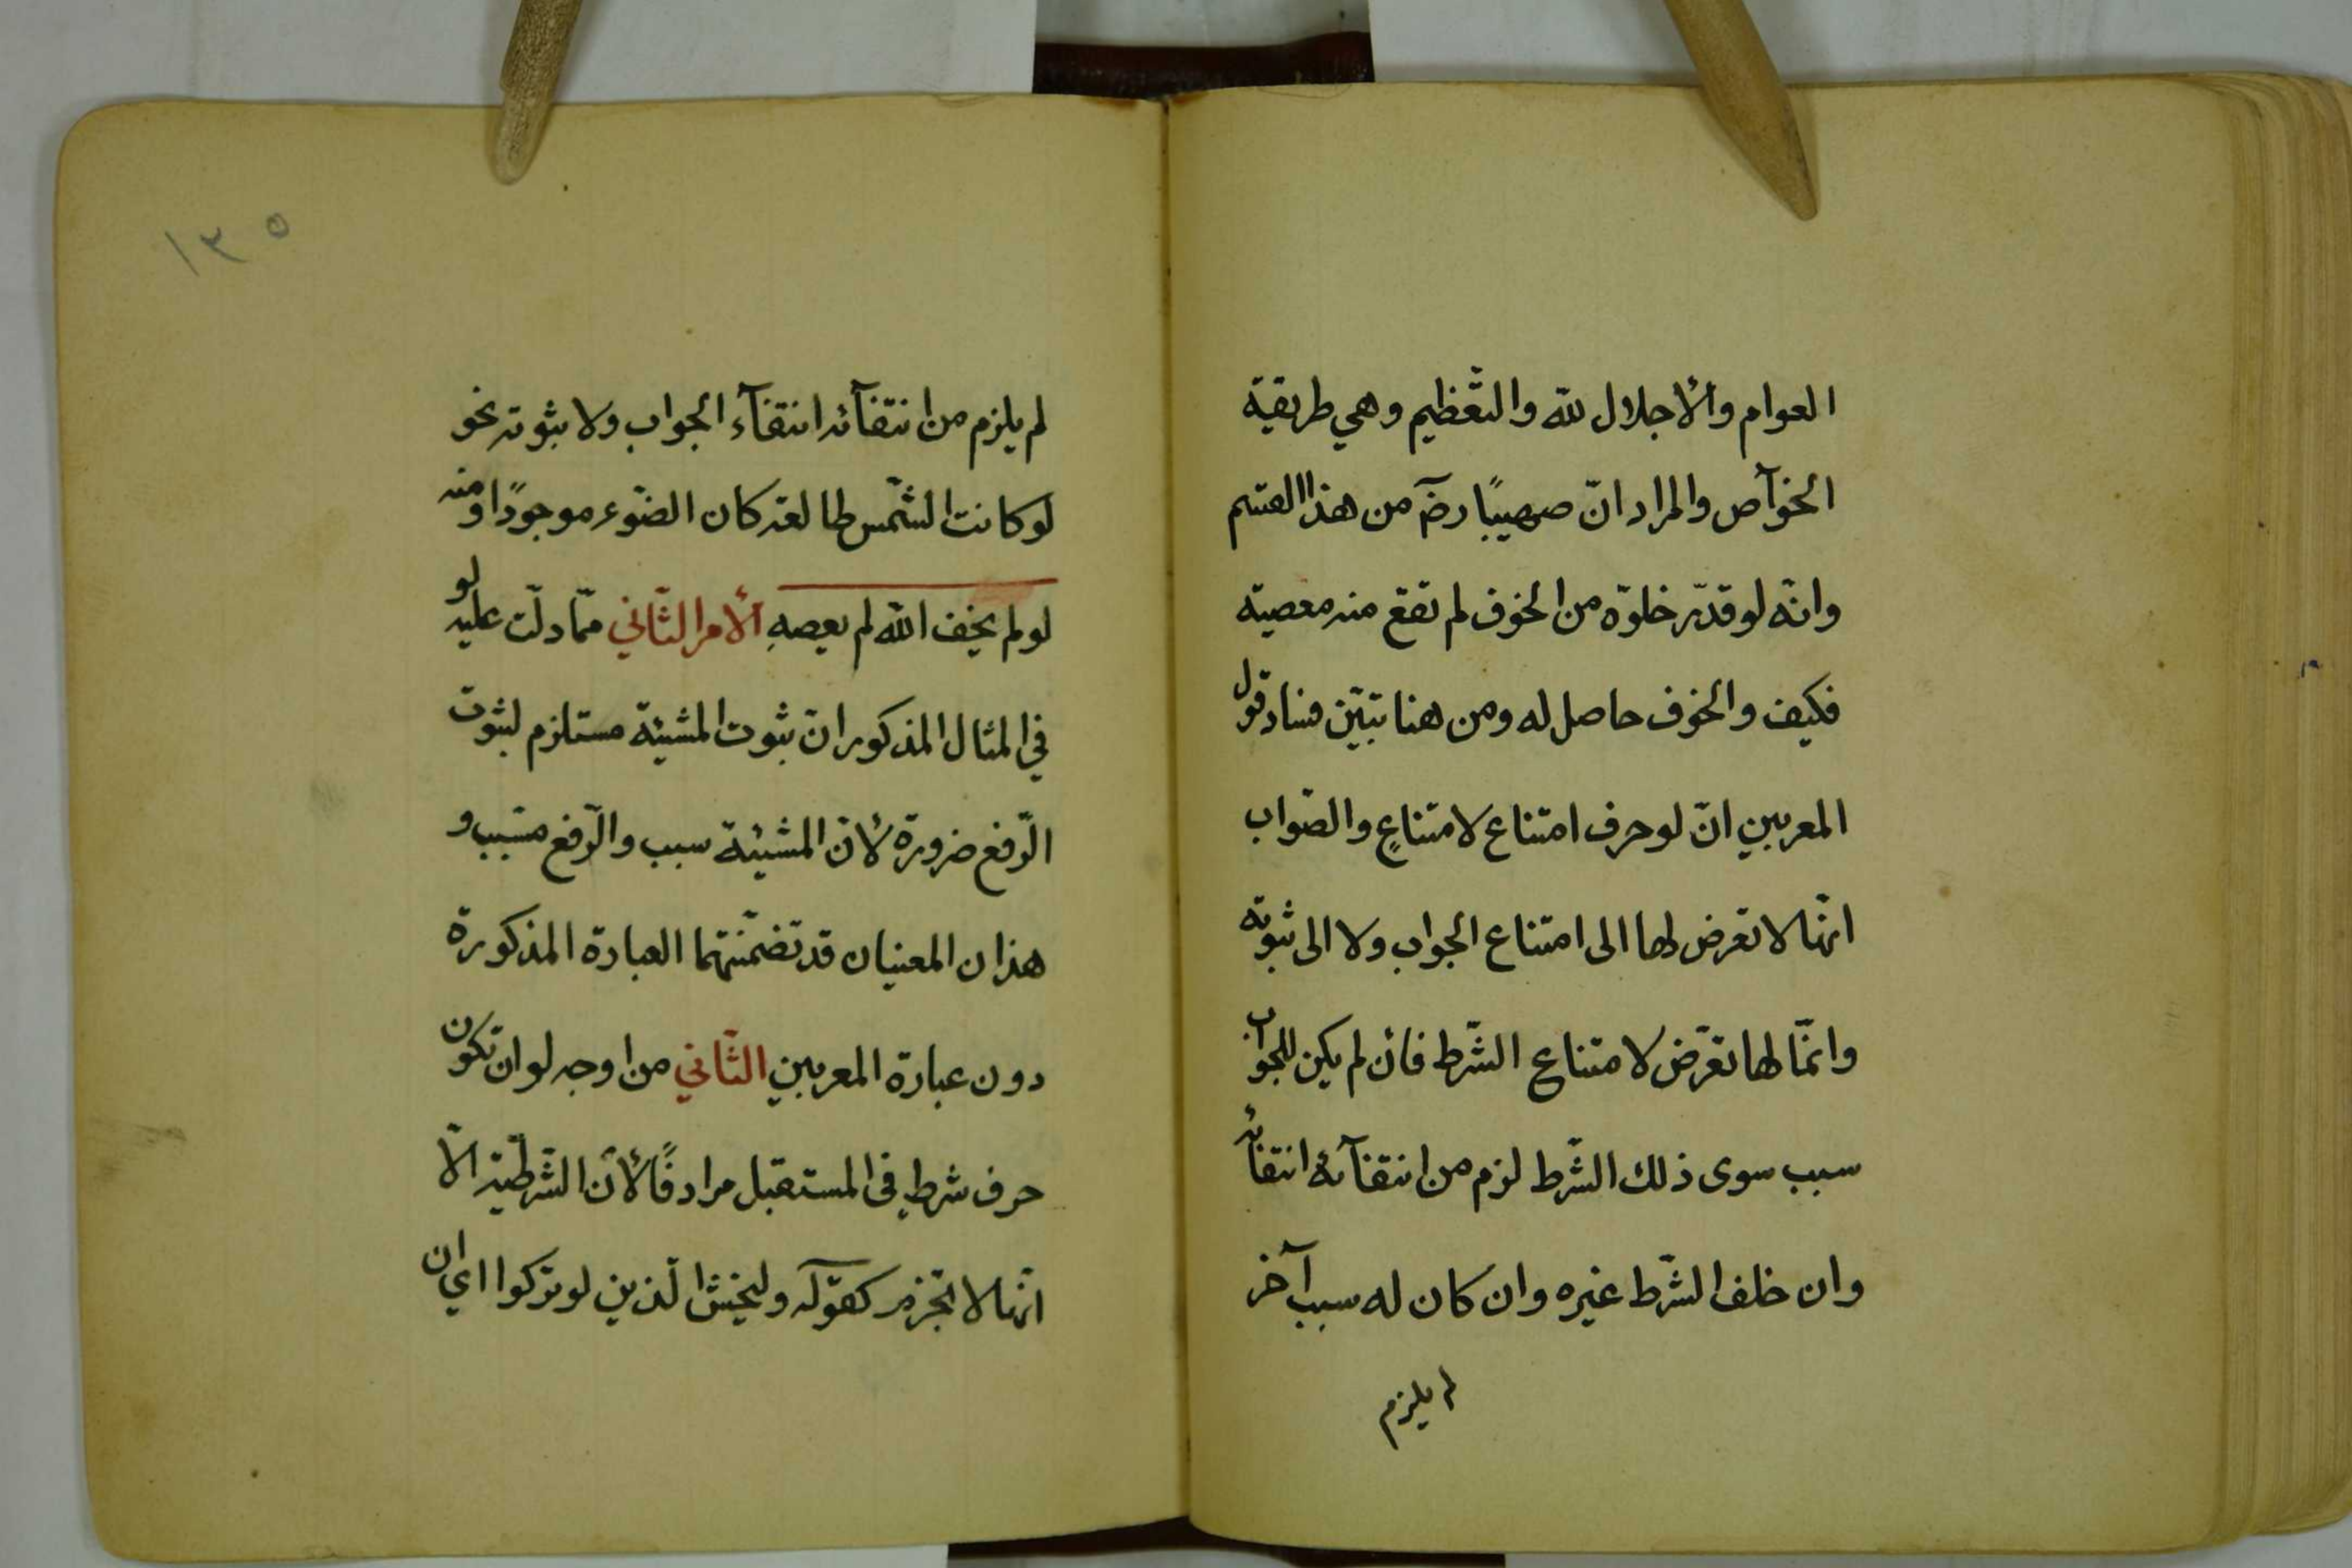 العوام والأجلال لله والتّعظيم وهي طريقة
الخوآص والمراد انّ صهيبًا رضَ من هذا القسم
وانّه لو قدّر خلوّه من الخوف لم تقع منه معصية
فكيف والخوف حاصل له ومن هنا تبيّن فساد قول
المعربين انّ لو حرف امتناع لامتناعٍ والصّواب
انّها لا تعرض لها الى امتناع الجواب ولا الى ثبوته
وانّما لها تعرّض لامتناع الشّرط فأن لم يكن للجواب
سبب سوى ذلك الشّرط لزم من انتفآئه انتفائه
وان خلف الشّرط غيره وان كان له سبب آخر
لم يلزم
١٣٥
لم يلزم من انتفآئه انتفآء الجواب ولا ثبوته نحو
لو كانت الشّمس طالعة كان الضّوء موجودًا ومنه
لو لم يخف الله لم يعصهِ ألامر الثّاني ممّا دلّت عليه لو
في المثال المذكور انّ ثبوت المشيئة مستلزم لثبوت
الرّفع ضرورة لأنّ المشيئة سبب والرّفع مسّبب و
هذان المعنيان قد تضمّنتهما العبارة المذكورة
دون عبارة المعربين الثّاني من اوجه لو ان تكون
حرف شرط في المستقبل مرادفًا لأن الشّرطيّة الّا
انّها لا تجزم كقوله وليخش الّذين لو تركوا اي ان